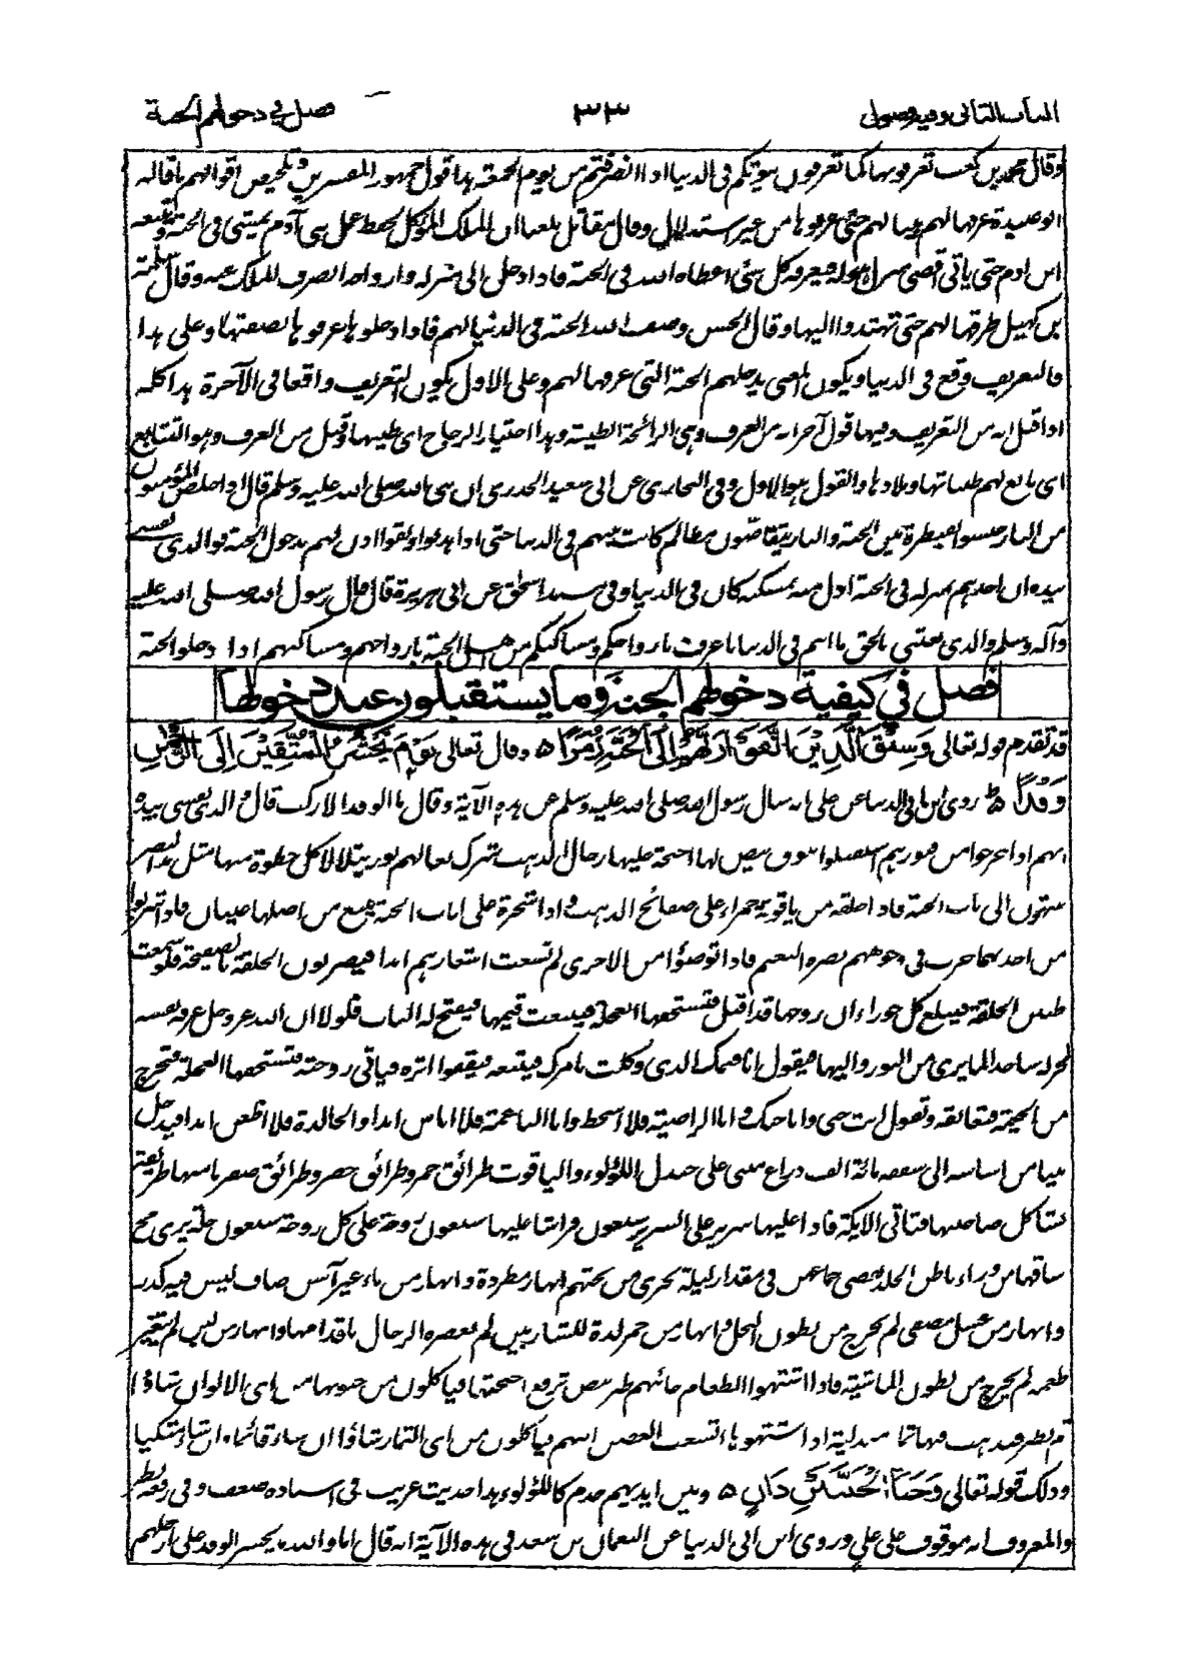 الباب الثاني وفيه فصول ٣٣ فصل في دخولهم الجنة
وقال محمد بن كعب تعرفونها كما تعرفون بيوتكم في الدنيا اذا انصرفتم من يوم الجمعة هذا قول جمهور المفسرين وتلخيص اقوالهم ما قاله
ابو عبيدة عرفها لهم بينها لهم حتى عرفوها من غير استدلال وقال مقاتل بلغنا ان الملك الموكل بحفظ عمل بني آدم يمشي في الجنة ويتبعه
ابن ادم حتى ياتي اقصى منزل هو له فيعرفه كل شئ اعطاه الله في الجنة فاذا دخل الى منزله وازواجه انصرف الملك عنه وقال سلمة
بن كهيل طرقها لهم حتى تهتدوا اليها وقال الحسن وصف الله الجنة في الدنيا لهم فاذا دخلوها عرفوها بصفتها وعلى هذا
فالتعريف وقع في الدنيا ويكون المعنى يدخلهم الجنة التي عرفها لهم وعلى الاول يكون التعريف واقعا في الآخرة هذا كله
اذا قيل انه من التعريف وفيها قول آخر انه من العرف وهي الرائحة الطيبة وهذا اختيار الزجاج اي طيبها وقيل من العرف وهو التتابع
اي تابع لهم طيباتها وملاذها والقول هو الاول وفي البخاري عن ابي سعيد الخدري ان نبي الله صلى الله عليه وسلم قال اذا خلص المؤمنون
من النار حبسوا بقنطرة بين الجنة والنار يتقاصون مظالم كانت بينهم في الدنيا حتى اذا هذبوا ونقوا اذن لهم بدخول الجنة فوالذي نفسي
بيده ان احدهم بمنزله في الجنة ادل منه بمسكنه كان في الدنيا وفي مسند اسحق عن ابي هريرة قال قال رسول الله صلى الله عليه
وآله وسلم والذي بعثني بالحق ما انتم في الدنيا باعرف بازواجكم ومساكنكم من اهل الجنة بازواجهم ومساكنهم اذا دخلوا الجنة
فصل في كيفية دخولهم الجنة وما يستقبلون عند دخولها
قد تقدم قوله تعالى وَسِيْقَ الَّذِيْنَ اتَّقَوْا رَبَّهُمْ اِلَى الْجَنَّةِ زُمَرًا ٥ وقال تعالى يَوْمَ نَحْشُرُ الْمُتَّقِيْنَ اِلَى الرَّحْمٰنِ
وَفْدًا ٥ روى ابن ابي الدنيا عن علي انه سال رسول الله صلى الله عليه وسلم عن هذه الآية وقال ما الوفد الا ركب قال والذي نفسي بيده
انهم اذا خرجوا من قبورهم استقبلوا بنوق بيض لها اجنحة عليها رحال الذهب شرك نعالهم نور يتلالا كل خطوة منها مثل مد البصر
ينتهون الى باب الجنة فاذا حلقة من ياقوتة حمراء على صفائح الذهب واذا شجرة على باب الجنة ينبع من اصلها عينان فاذا شربوا
من احدهما جرت في وجوههم نضرة النعيم فاذا توضؤا من الاخرى لم تشعث اشعارهم ابدا فيضربون الحلقة بالصفيحة فلو سمعت
طنين الحلقة فيبلغ كل حوراء ان زوجها قد اقبل فتستخفها العجلة فيبعث قيمها فيفتح له الباب فلولا ان الله عز وجل عرفه نفسه
لخر له ساجدا لما يرى من النور والبهاء فيقول انا قيمك الذي وكلت بامرك فيتبعه فيقفوا اثره فياتي زوجته فتستخفها العجلة فتخرج
من الخيمة فتعانقه وتقول انت حبي وانا حبك وانا الراضية فلا اسخط وانا الناعمة فلا اباس ابدا والخالدة فلا اظعن ابدا فيدخل
بيتا من اساسه الى سقفه مائة الف ذراع مبني على جندل اللؤلوء والياقوت طرائق حمر وطرائق خضر وطرائق صفر ما منها طريقة
تشاكل صاحبتها فتاتي الاريكة فاذا عليها سرير على السرير سبعون فراشا عليها سبعون زوجة على كل زوجة سبعون حلة يرى مخ
ساقها من وراء باطن الحلد يقضي جماعهن في مقدار ليلة تجري من تحتهم انهار مطردة وانهار من ماء غير آسن صاف ليس فيه كدر
وانهار من عسل مصفى لم يخرج من بطون النحل وانهار من خمر لذة للشاربين لم تعصره الرجال باقدامها وانهار من لبن لم يتغير
طعمه لم يخرج من بطون الماشية فاذا اشتهوا الطعام جائتهم طير بيض ترفع اجنحتها فياكلون من جنوبها من اي الالوان شاؤا
ثم تطير فتذهب فيها ثمار متدلية اذا اشتهوها انشعب الغصن اليهم فيأكلون من اي الثمار شاؤا ان شاء قائما وان شاء متكيا
وذلك قوله تعالى وَجَنَا الْجَنَّتَيْنِ دَانٍ ٥ وبين ايديهم خدم كاللؤلوء هذا حديث غريب في اسناده ضعف وفي رفعه نظر
والمعروف انه موقوف على علي وروى ابن ابي الدنيا عن النعمان بن سعد في هذه الآية انه قال اما والله ما يحشر الوفد على ارجلهم